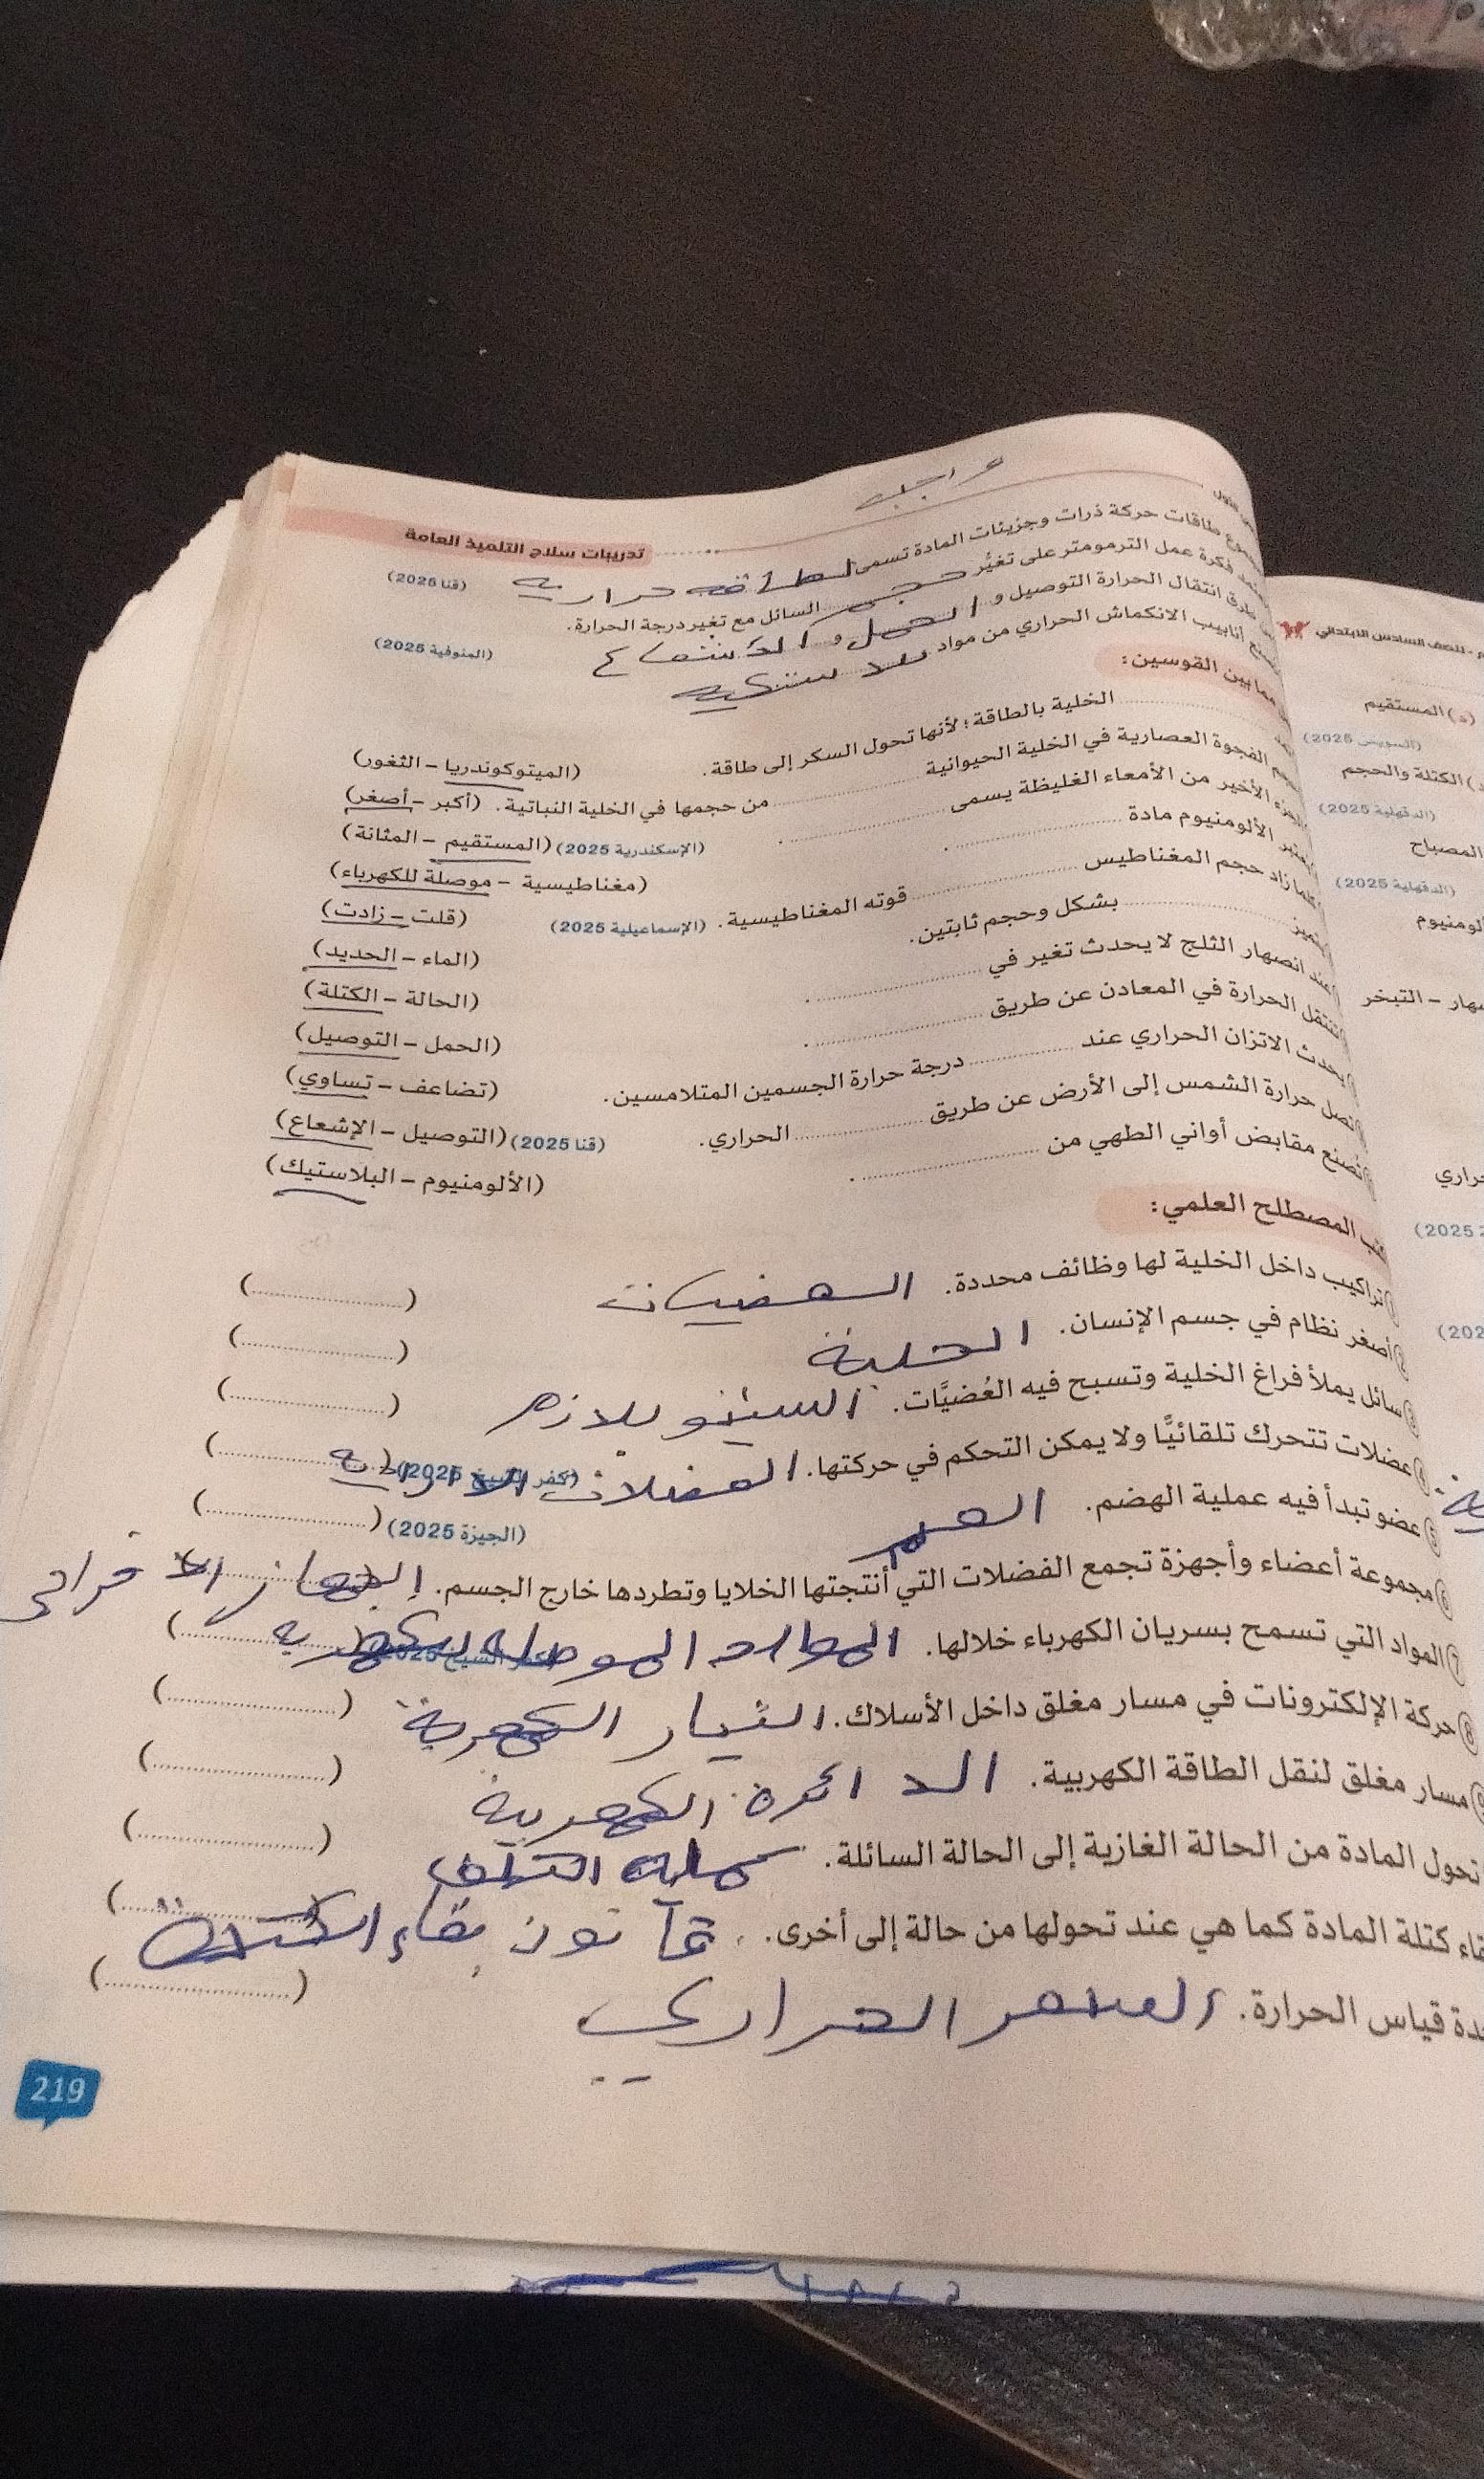 تدريبات سلاح التلميذ العامة
طاقات حركة ذرات وجزيئات المادة تسمى الطاقه حرارية (قنا 2025)
فكرة عمل الترمومتر على تغيُّر حجم السائل مع تغير درجة الحرارة.
طرق انتقال الحرارة التوصيل و الحمل و الاشعاع (المنوفية 2025)
أنابيب الانكماش الحراري من مواد بلاستيكيه
مما بين القوسين:
الخلية بالطاقة؛ لأنها تحول السكر إلى طاقة. (الميتوكوندريا – الثغور)
الفجوة العصارية في الخلية الحيوانية من حجمها في الخلية النباتية. (أكبر – أصغر)
الأخير من الأمعاء الغليظة يسمى (الإسكندرية 2025) (المستقيم – المثانة)
الألومنيوم مادة (مغناطيسية – موصلة للكهرباء)
كلما زاد حجم المغناطيس قوته المغناطيسية. (الإسماعيلية 2025) (قلت – زادت)
بشكل وحجم ثابتين. (الماء – الحديد)
عند انصهار الثلج لا يحدث تغير في (الحالة – الكتلة)
تنتقل الحرارة في المعادن عن طريق (الحمل – التوصيل)
يحدث الاتزان الحراري عند درجة حرارة الجسمين المتلامسين. (تضاعف – تساوي)
تصل حرارة الشمس إلى الأرض عن طريق الحراري. (قنا 2025) (التوصيل – الإشعاع)
تُصنع مقابض أواني الطهي من (الألومنيوم – البلاستيك)
المصطلح العلمي:
تراكيب داخل الخلية لها وظائف محددة. العضيات
أصغر نظام في جسم الإنسان. الخلية
سائل يملأ فراغ الخلية وتسبح فيه العُضيَّات. السيتوبلازم
عضلات تتحرك تلقائيًّا ولا يمكن التحكم في حركتها. العضلات
عضو تبدأ فيه عملية الهضم. الفم (الجيزة 2025)
مجموعة أعضاء وأجهزة تجمع الفضلات التي أنتجتها الخلايا وتطردها خارج الجسم. الجهاز الاخراجى
المواد التي تسمح بسريان الكهرباء خلالها. المواد الموصله للكهربيه
حركة الإلكترونات في مسار مغلق داخل الأسلاك. التيار الكهربية
مسار مغلق لنقل الطاقة الكهربية. الدائرة الكهربية
تحول المادة من الحالة الغازية إلى الحالة السائلة. عمليه التكثف
كتلة المادة كما هي عند تحولها من حالة إلى أخرى. قانون بقاء الكتلة
قياس الحرارة. السعر الحراري
219
للصف السادس الابتدائي
(د) المستقيم
(السويس 2025)
الكتلة والحجم
(الدقهلية 2025)
المصباح
(الدقهلية 2025)
– التبخر